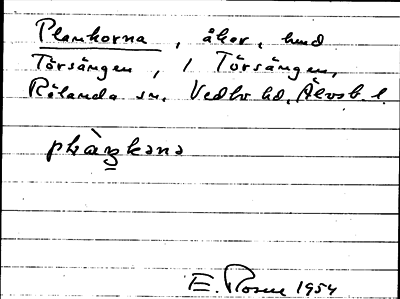 Plankorna, åker, hmd
Törsängen, 1 Törsängen,
Rölanda sn. Vedbo hd, Älvsb. l.
E. Rosen 1954